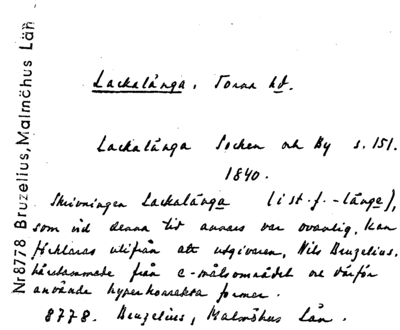 Nr 8778 Bruzelius, Malmöhus Län
Lackalänga, Torna hd.
Lackalänga Socken och By s. 151.
1840.
Skrivningen Lackalänga (i st. f. -långe),
som vid denna tid annars var ovanlig, kan
förklaras utifrån att utgivaren, Nils Bruzelius,
härstammade från e-målsområdet och därför
använde hyperkorrekta former.
8778. Bruzelius, Malmöhus Län.